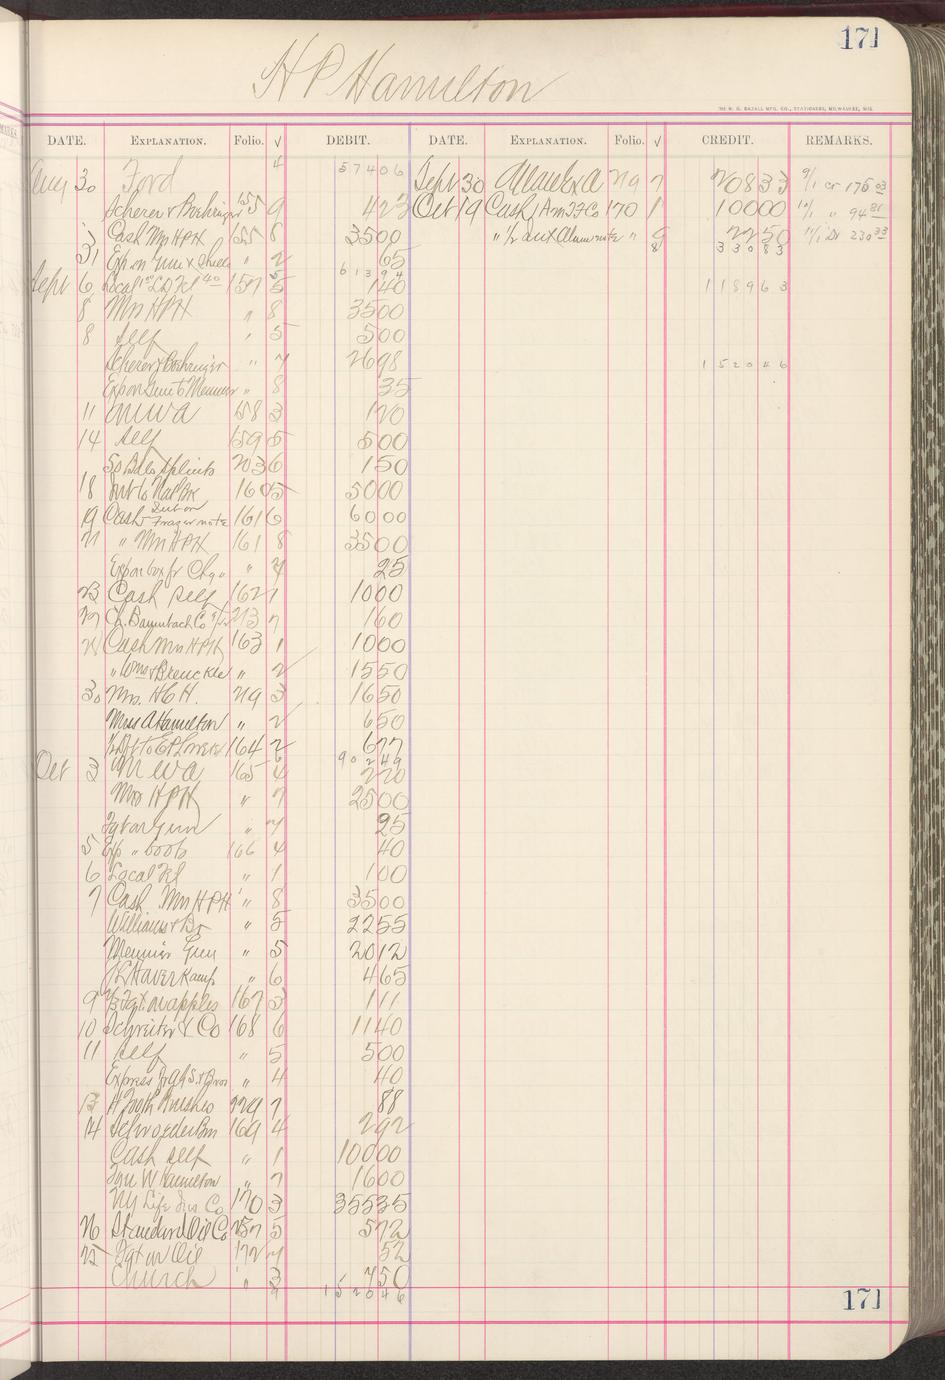 171
H P Hamilton
THE W. H. BAZALL MFG. CO., STATIONERS, MILWAUKEE, WIS.
DATE. EXPLANATION. Folio. √ DEBIT. DATE. EXPLANATION. Folio. √ CREDIT. REMARKS.
Aug 30 Ford 4 57406 Sept 30 219 7 20833 9/1 cr 175 03
Scherer & Boehringer 155 9 423 Oct 19 Cash 170 1 10000 10/1 " 94 81
Cash Mrs HPH 155 8 3500 " 1/2 Alum note " 9 2250 11/1 Dr 230 33
31 Exp on Gun & Shells " 2 65 8 33083
61394
Sept 6 Local Tel 157 5 140 118963
8 Mrs HPH " 8 3500
8 Self " 5 500
Scherer & Boehringer " 7 2698 152046
Exp on Gun to Meunier " 8 35
11 M W A 158 3 120
14 Self 159 5 500
Splints 203 6 150
18 Int to Nat Bk 160 5 5000
19 Cash Frazer note 161 6 6000
21 " Mrs HPH 161 8 3500
Exp on box fr Chg " 4 25
23 Cash Self 162 1 1000
27 Baumbach Co 213 7 160
28 Cash Mrs HPH 163 1 1000
" & Breuckle " 2 1550
30 Mrs. H C H. 219 3 1650
Miss A Hamilton " 2 650
164 2 677
6 90249
Oct 3 M W A 165 4 220
Mrs HPH " 7 2500
Fgt on Gun " 4 25
5 Exp " boots 166 4 40
6 Local Tel " 1 100
7 Cash Mrs HPH " 8 3500
Williams & Br " 5 2255
Meunier Gun " 5 2012
Haverkamp " 6 465
9 1/3 Fgt. on apples 167 3 111
10 Schreiter & Co 168 6 1140
11 Self " 5 500
Express " 4 40
13 Tooth Brushes 229 7 88
14 Schroeder Bro 169 4 292
Cash self " 1 10000
W Hamilton " 7 1600
NY Life Ins Co 170 3 35535
26 Standard Oil Co 257 5 572
25 Fgt on Oil 172 4 52
Church " 3 750
9 152046
171